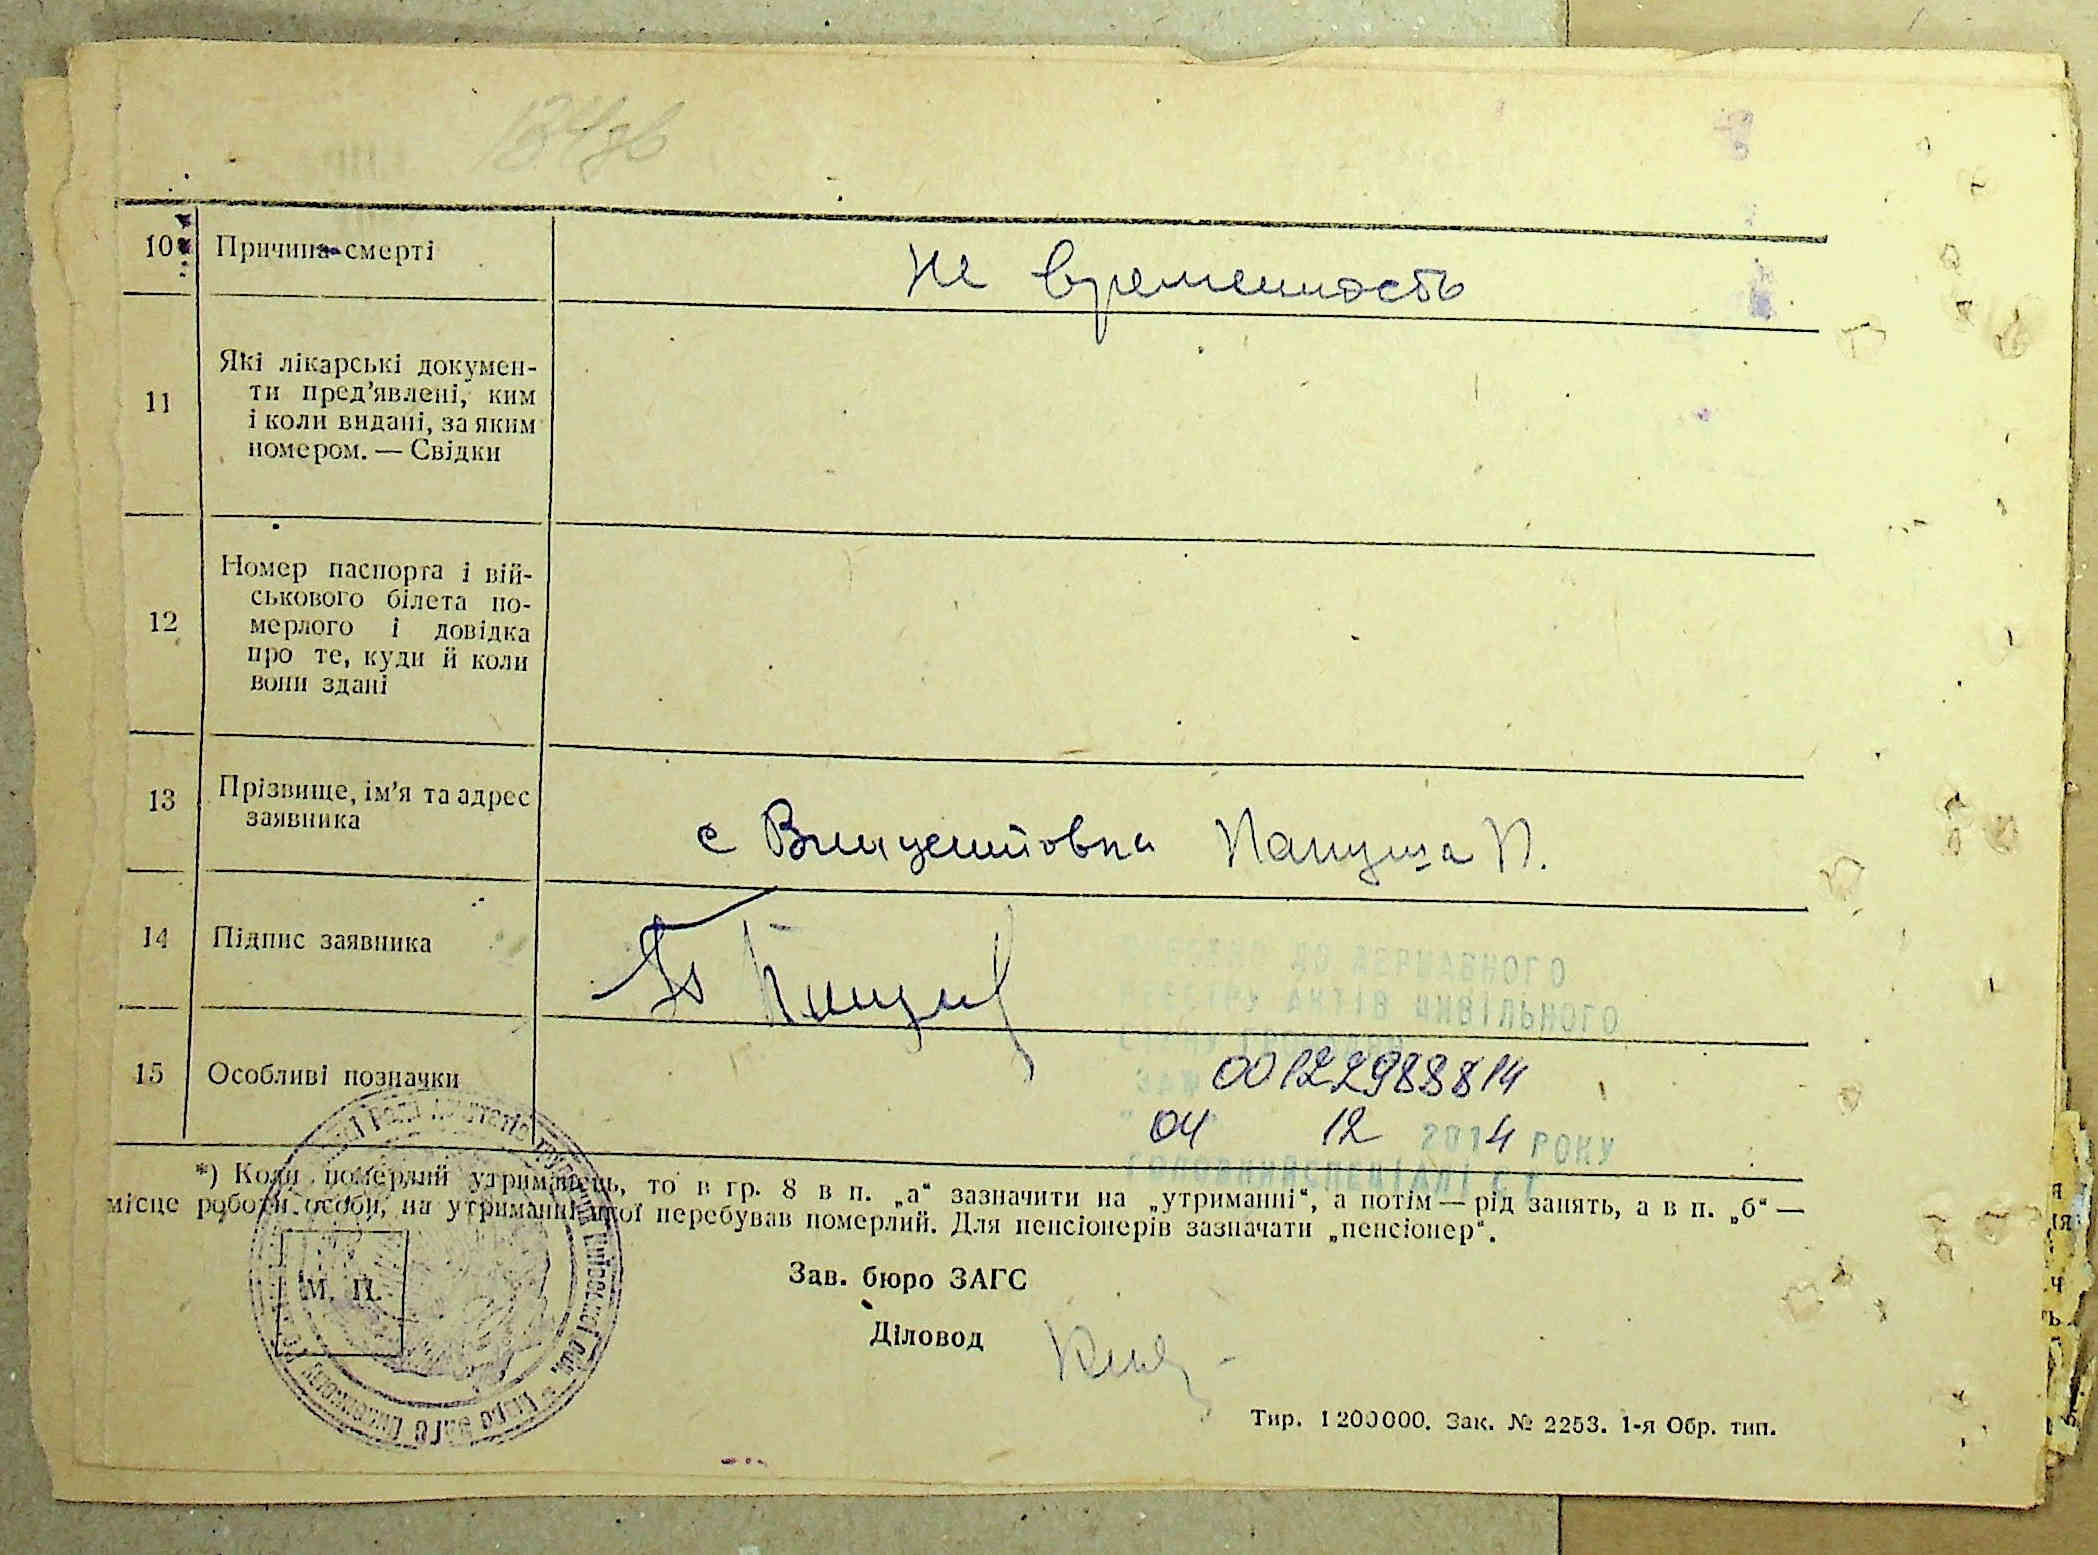 10 Причина смерті
Не временность
11 Які лікарські докумен-
ти пред’явлені, ким
і коли видані, за яким
номером. — Свідки
12 Номер паспорта і вій-
ськового білета по-
мерлого і довідка
про те, куди й коли
вони здані
13 Прізвище, ім’я та адрес
заявника
с Винцентовка Папуша П.
14 Підпис заявника
ДО ДЕРЖАВНОГО
РЕЄСТРУ АКТІВ ЦИВІЛЬНОГО
15 Особливі позначки
00122988814
04 12 2014 РОКУ
ГОЛОВНИЙ СПЕЦІАЛІСТ
*) Коли померлий утриманець, то в гр. 8 в п. „а“ зазначити на „утриманні“, а потім — рід занять, а в п. „б“ —
місце роботи особи, на утриманні якої перебував померлий. Для пенсіонерів зазначати „пенсіонер“.
М. П.
Зав. бюро ЗАГС
Діловод
Тир. 1 200000. Зак. № 2253. 1-я Обр. тип.